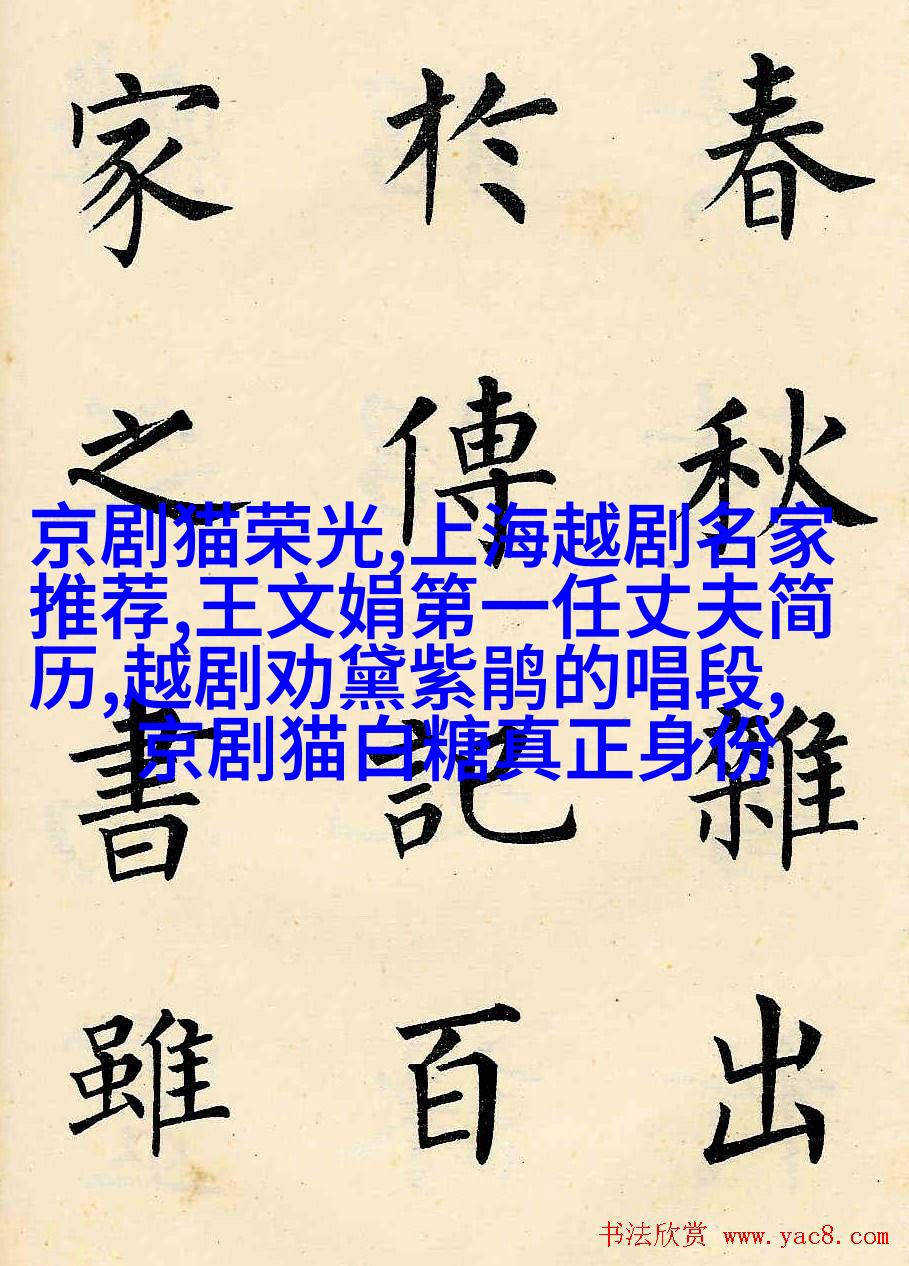 春秋雜出
於傳記百
家之書雖
京剧猫荣光,上海越剧名家
推荐,王文娟第一任丈夫简
历,越剧劝黛紫鹃的唱段,
京剧猫白糖真正身份
书法欣赏 www.yac8.com